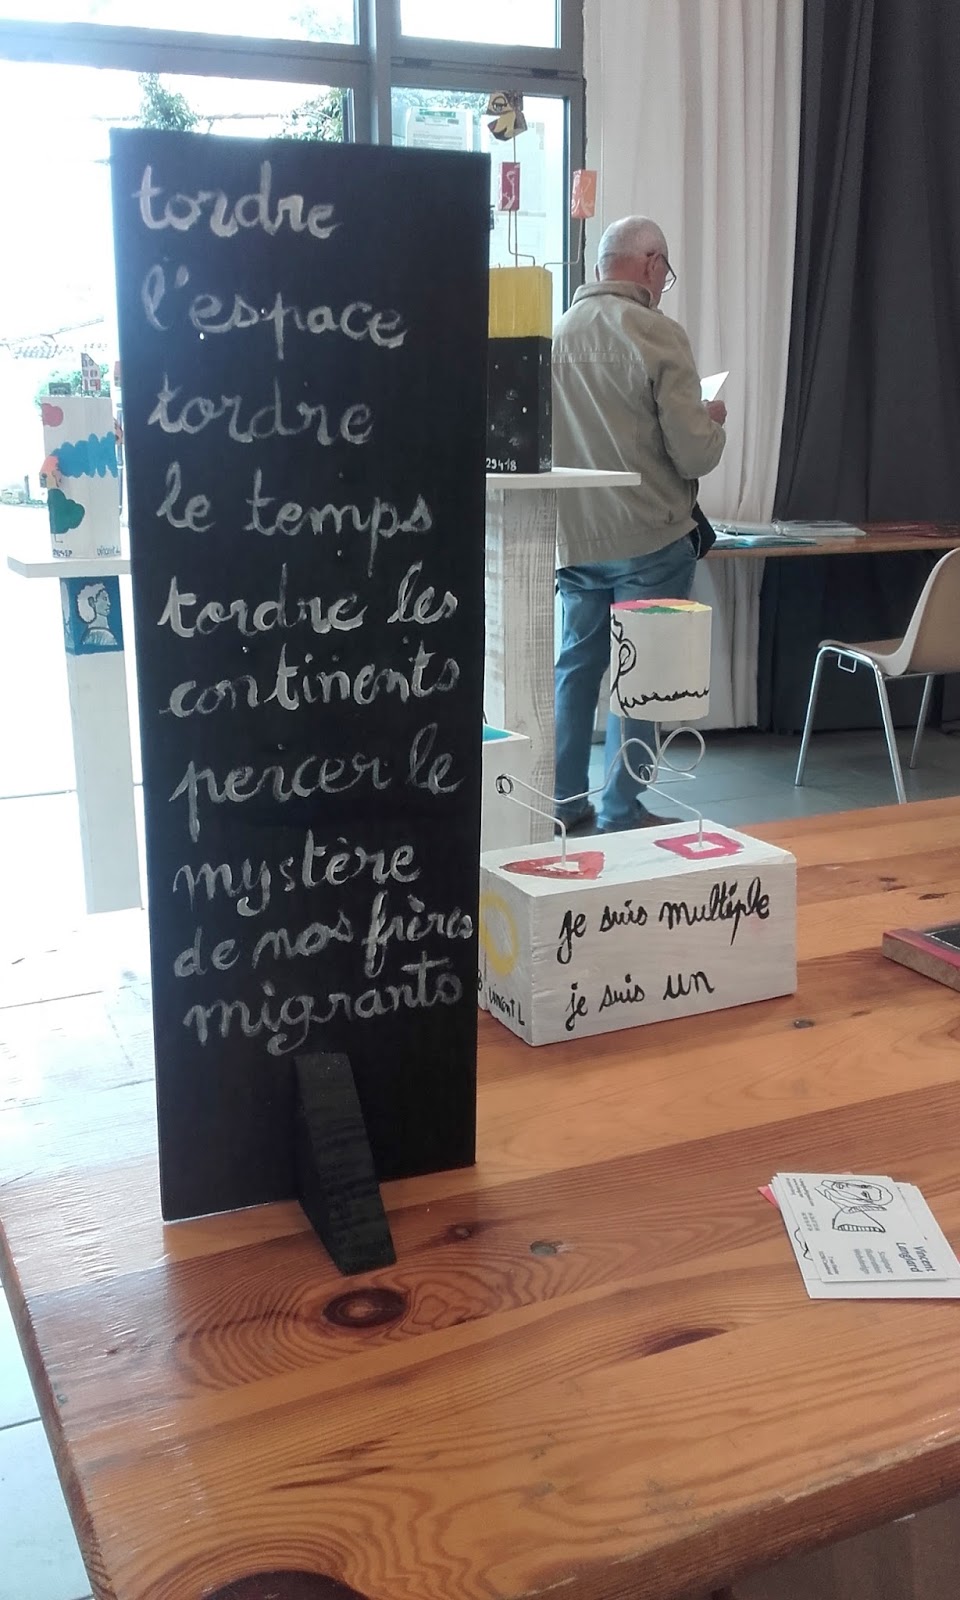 tordre
l'espace
tordre
le temps
tordre les
continents
percer le
mystère
de nos frères
migrants
je suis multiple
je suis un
Vincent L
29418
Vincent